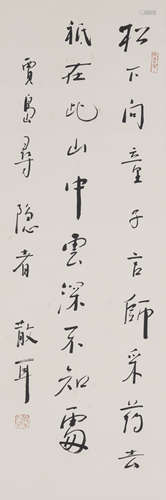 松下问童子言師采药去
祗在此山中雲深不知處
賈島尋隐者 散耳